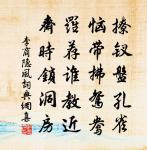 搽釵盤孔雀
惱帶拂鴛鴦
羅荐誰教近
齋時鎖洞房
李商隱風詞典網喜